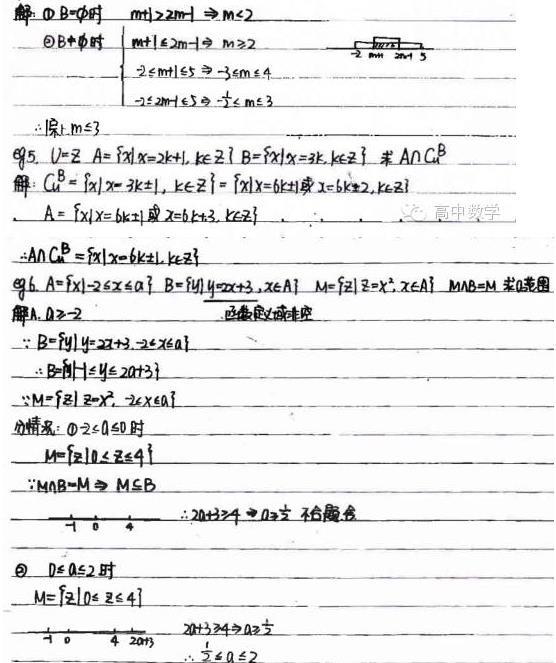 解: ① B=∅时 m+1>2m-1 ⇒ m<2
② B≠∅时 m+1≤2m-1 ⇒ m≥2
-2≤m+1≤5 ⇒ -3≤m≤4
-2≤2m-1≤5 ⇒ -1/2≤m≤3
-2 m+1 2m-1 5
∴综上 m≤3
eg5. U=Z A={x|x=2k+1, k∈Z} B={x|x=3k, k∈Z} 求A∩CuB
解: CuB={x|x=3k±1, k∈Z}={x|x=6k±1或x=6k±2, k∈Z}
A={x|x=6k±1或x=6k+3, k∈Z}
高中数学
∴A∩CuB={x|x=6k±1, k∈Z}
eg6. A={x|-2≤x≤a} B={y|y=2x+3, x∈A} M={z|z=x², x∈A} M∩B=M 求a范围
解A. a≥-2 函数定义域非空
∵B={y|y=2x+3, -2≤x≤a}
∴B={y|-1≤y≤2a+3}
∵M={z|z=x², -2≤x≤a}
分情况: ①-2≤a≤0时
M={z|0≤z≤4}
∵M∩B=M ⇒ M⊆B
-1 0 4 ∴2a+3≥4 ⇒ a≥1/2 不合题舍
② 0≤a≤2时
M={z|0≤z≤4}
-1 0 4 2a+3 2a+3≥4 ⇒ a≥1/2
∴ 1/2≤a≤2